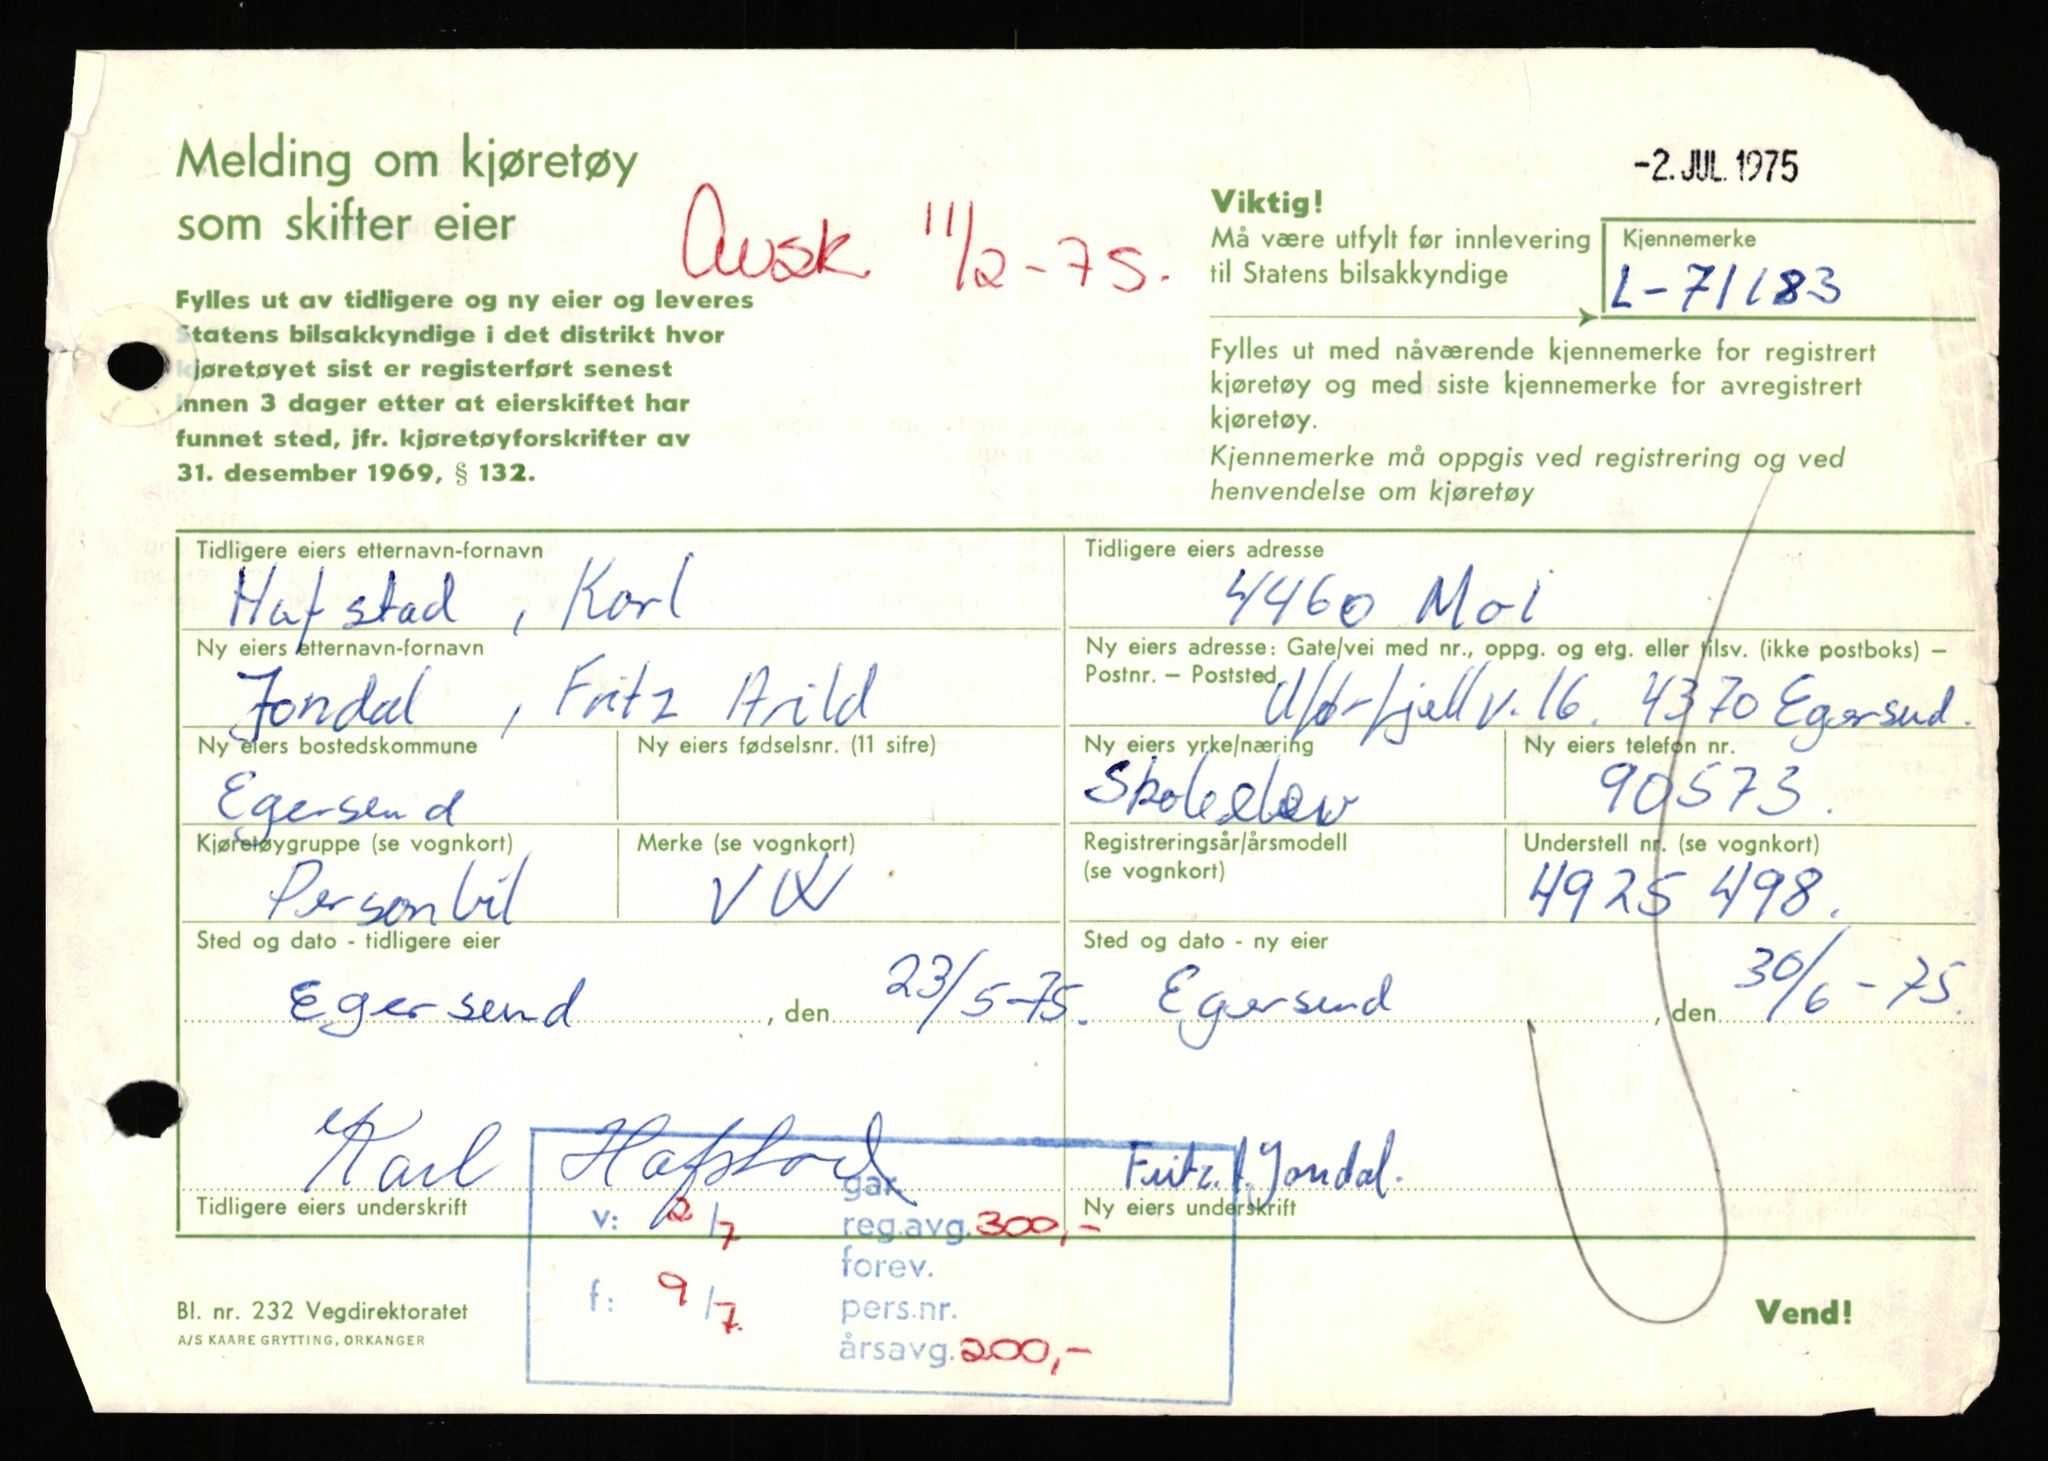 -2. JUL. 1975
Melding om kjøretøy
som skifter eier
Avsk. 11/2-75.
Viktig!
Må være utfylt før innlevering
til Statens bilsakkyndige
Kjennemerke
L-71183
Fylles ut av tidligere og ny eier og leveres
Statens bilsakkyndige i det distrikt hvor
kjøretøyet sist er registerført senest
innen 3 dager etter at eierskiftet har
funnet sted, jfr. kjøretøyforskrifter av
31. desember 1969, § 132.
Fylles ut med nåværende kjennemerke for registrert
kjøretøy og med siste kjennemerke for avregistrert
kjøretøy.
Kjennemerke må oppgis ved registrering og ved
henvendelse om kjøretøy
Tidligere eiers etternavn-fornavn
Hafstad, Karl
Tidligere eiers adresse
4460 Moi
Ny eiers etternavn-fornavn
Jondal, Fritz Arild
Ny eiers adresse: Gate/vei med nr., oppg. og etg. eller tilsv. (ikke postboks) –
Postnr. – Poststed
v. 16. 4370 Egersund.
Ny eiers bostedskommune
Egersund
Ny eiers fødselsnr. (11 sifre)
Ny eiers yrke/næring
Skoleelev
Ny eiers telefon nr.
90573.
Kjøretøygruppe (se vognkort)
Personbil
Merke (se vognkort)
VW
Registreringsår/årsmodell
(se vognkort)
Understell nr. (se vognkort)
4925498.
Sted og dato - tidligere eier
Egersund, den 23/5-75.
Sted og dato - ny eier
Egersund, den 30/6-75.
Karl Hafstad
Tidligere eiers underskrift
Fritz A. Jondal.
Ny eiers underskrift
gar.
v: 2/7 reg.avg. 300,-
forev.
f: 9/7. pers.nr.
årsavg. 200,-
Bl. nr. 232 Vegdirektoratet
A/S KAARE GRYTTING, ORKANGER
Vend!